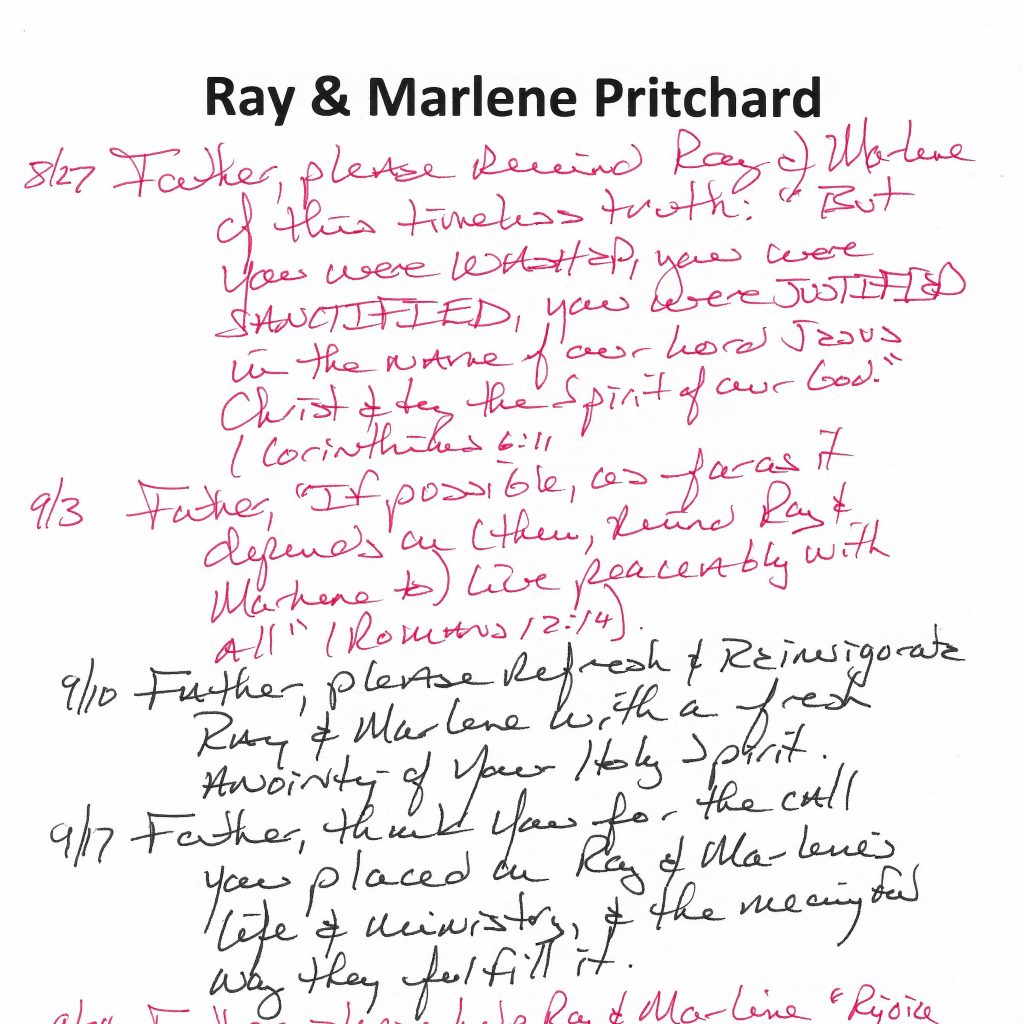 Ray & Marlene Pritchard
8/27 Father, please Remind Ray & Marlene
of this timeless truth: "But
you were WASHED, you were
SANCTIFIED, you were JUSTIFIED
in the name of our Lord Jesus
Christ & by the Spirit of our God."
1 Corinthians 6:11
9/3 Father, "If possible, as far as it
depends on (them, remind Ray &
Marlene to) live peaceably with
All" (Romans 12:14).
9/10 Father, please Refresh & Reinvigorate
Ray & Marlene with a fresh
Anointing of Your Holy Spirit.
9/17 Father, thank You for the call
you placed on Ray & Marlene's
life & ministry, & the meaningful
way they fulfill it.
Ray & Marlene "Rejoice